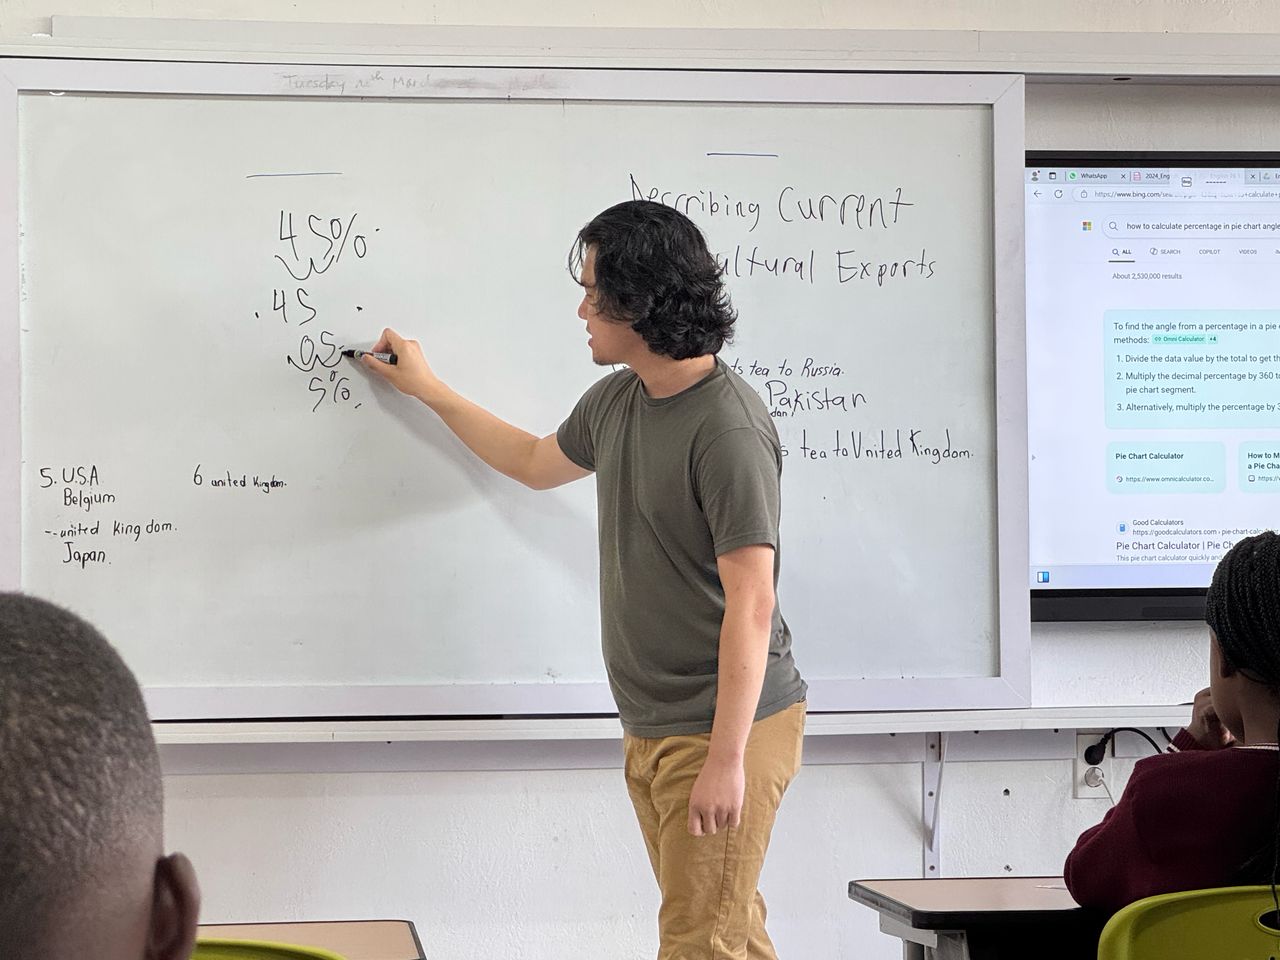 Tuesday th March
45%
.45 .
.05
5%
Describing Current
ultural Exports
ts tea to Russia.
Pakistan
dan,
s tea to United Kingdom.
5. U.S.A
Belgium
--united kingdom.
Japan.
6 united kingdom.
WhatsApp
2024_Eng
https://www.bing.com/sea
calculate+p
how to calculate percentage in pie chart angle
ALL SEARCH COPILOT VIDEOS
About 2,530,000 results
To find the angle from a percentage in a pie
methods: Omni Calculator +4
1. Divide the data value by the total to get th
2. Multiply the decimal percentage by 360 to
pie chart segment.
3. Alternatively, multiply the percentage by 3
Pie Chart Calculator
https://www.omnicalculator.co...
How to M
a Pie Cha
https://
Good Calculators
https://goodcalculators.com › pie-chart-calculator
Pie Chart Calculator | Pie Ch
This pie chart calculator quickly and